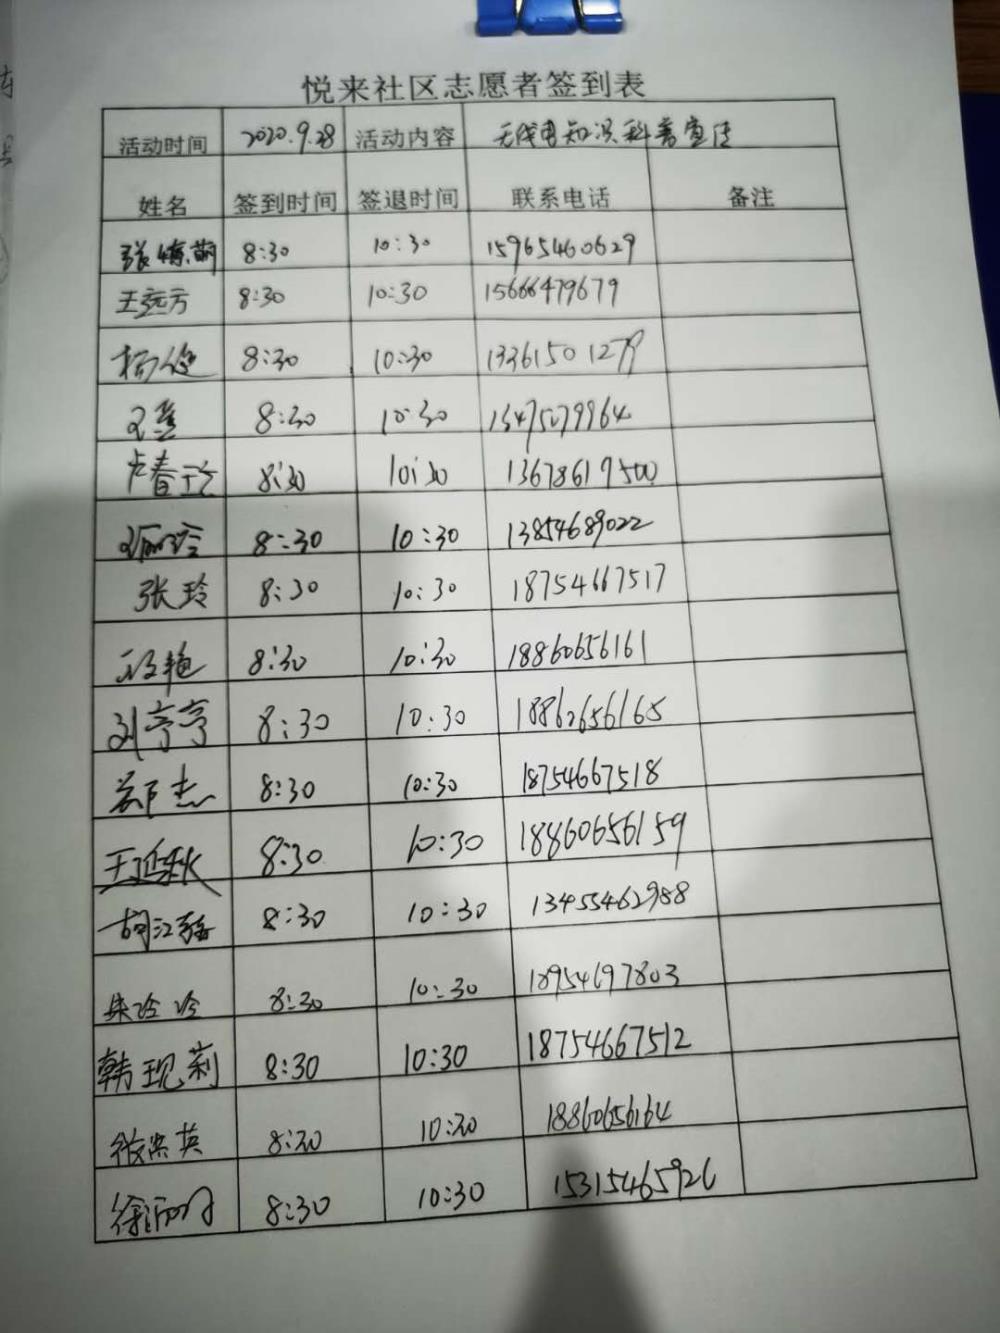 悦来社区志愿者签到表
活动时间 2020.9.28 活动内容 无线电知识科普宣传
姓名 签到时间 签退时间 联系电话 备注
8:30 10:30 15965460629
王远方 8:30 10:30 15666479679
8:30 10:30 13361501279
8:30 10:30 13475079964
卢春玲 8:30 10:30 13678619500
8:30 10:30 13854689022
张玲 8:30 10:30 18754667517
8:30 10:30 18860656161
刘亭亭 8:30 10:30 18862656165
郑杰 8:30 10:30 18754667518
8:30 10:30 18860656159
8:30 10:30 13455462988
8:30 10:30 18954697803
韩现莉 8:30 10:30 18754667512
8:30 10:30 18860656164
8:30 10:30 15315465926